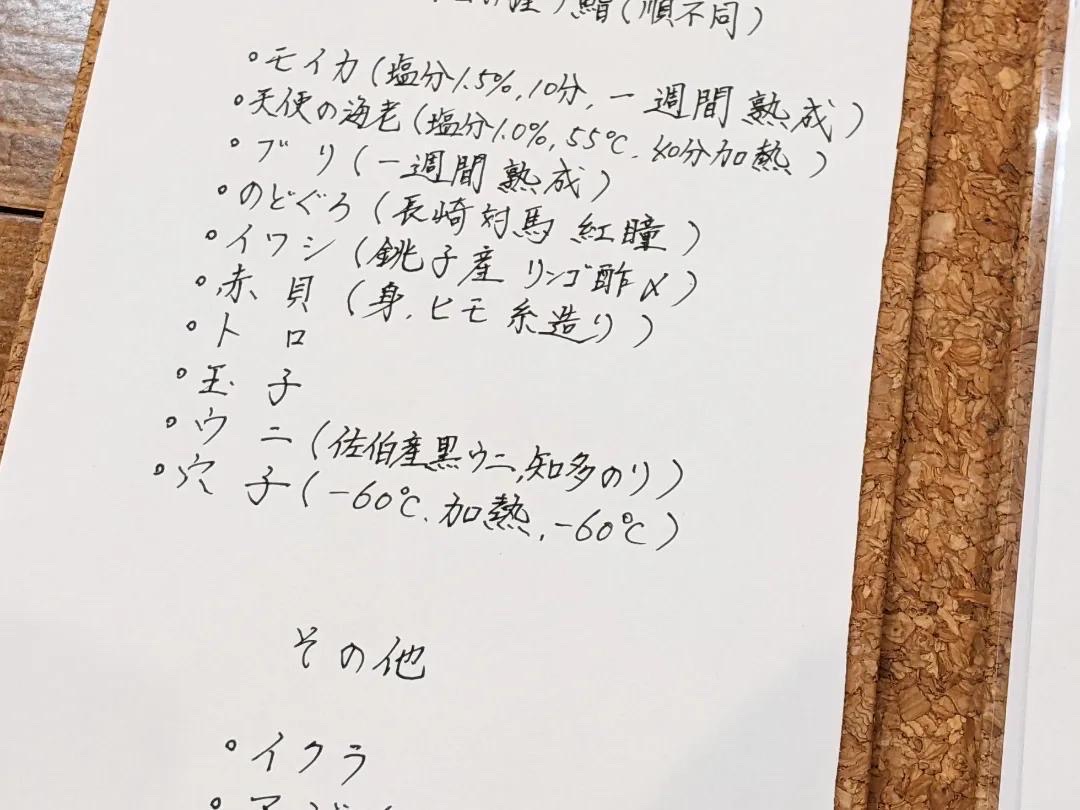 鮨(順不同)
・モイカ(塩分1.5%,10分,一週間熟成)
・天使の海老(塩分1.0%,55℃,40分加熱)
・ブリ(一週間熟成)
・のどぐろ(長崎対馬 紅瞳)
・イワシ(銚子産 リンゴ酢〆)
・赤貝(身,ヒモ 糸造り)
・トロ
・玉子
・ウニ(佐伯産黒ウニ,知多のり)
・穴子(-60℃,加熱,-60℃)
その他
・イクラ